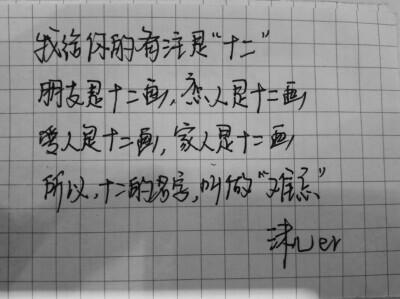 我给你的备注是“十二”
朋友是十二画，恋人是十二画
爱人是十二画，家人是十二画
所以，十二的名字，叫做“难忘”
er